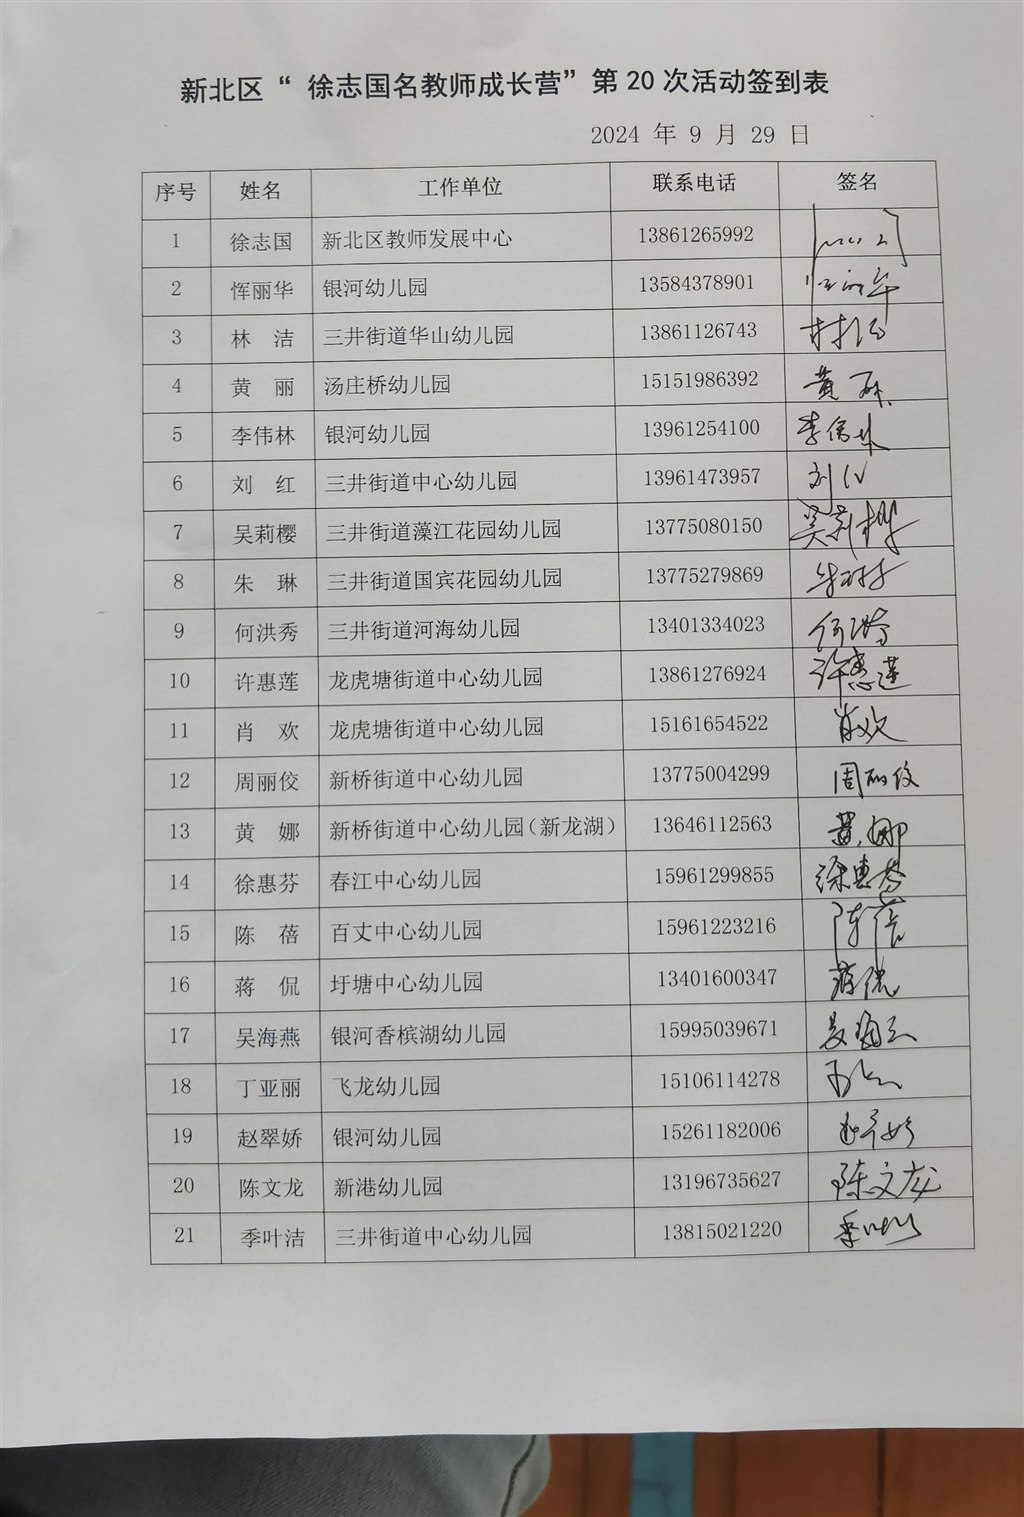 新北区“ 徐志国名教师成长营”第 20 次活动签到表
2024 年 9 月 29 日
序号 姓名 工作单位 联系电话 签名
1 徐志国 新北区教师发展中心 13861265992
2 恽丽华 银河幼儿园 13584378901 恽丽华
3 林 洁 三井街道华山幼儿园 13861126743 林洁
4 黄 丽 汤庄桥幼儿园 15151986392 黄丽
5 李伟林 银河幼儿园 13961254100 李伟林
6 刘 红 三井街道中心幼儿园 13961473957 刘红
7 吴莉樱 三井街道藻江花园幼儿园 13775080150 吴莉樱
8 朱 琳 三井街道国宾花园幼儿园 13775279869 朱琳
9 何洪秀 三井街道河海幼儿园 13401334023 何洪秀
10 许惠莲 龙虎塘街道中心幼儿园 13861276924 许惠莲
11 肖 欢 龙虎塘街道中心幼儿园 15161654522 肖欢
12 周丽佼 新桥街道中心幼儿园 13775004299 周丽佼
13 黄 娜 新桥街道中心幼儿园（新龙湖） 13646112563 黄娜
14 徐惠芬 春江中心幼儿园 15961299855 徐惠芬
15 陈 蓓 百丈中心幼儿园 15961223216 陈蓓
16 蒋 侃 圩塘中心幼儿园 13401600347 蒋侃
17 吴海燕 银河香槟湖幼儿园 15995039671
18 丁亚丽 飞龙幼儿园 15106114278
19 赵翠娇 银河幼儿园 15261182006
20 陈文龙 新港幼儿园 13196735627 陈文龙
21 季叶洁 三井街道中心幼儿园 13815021220